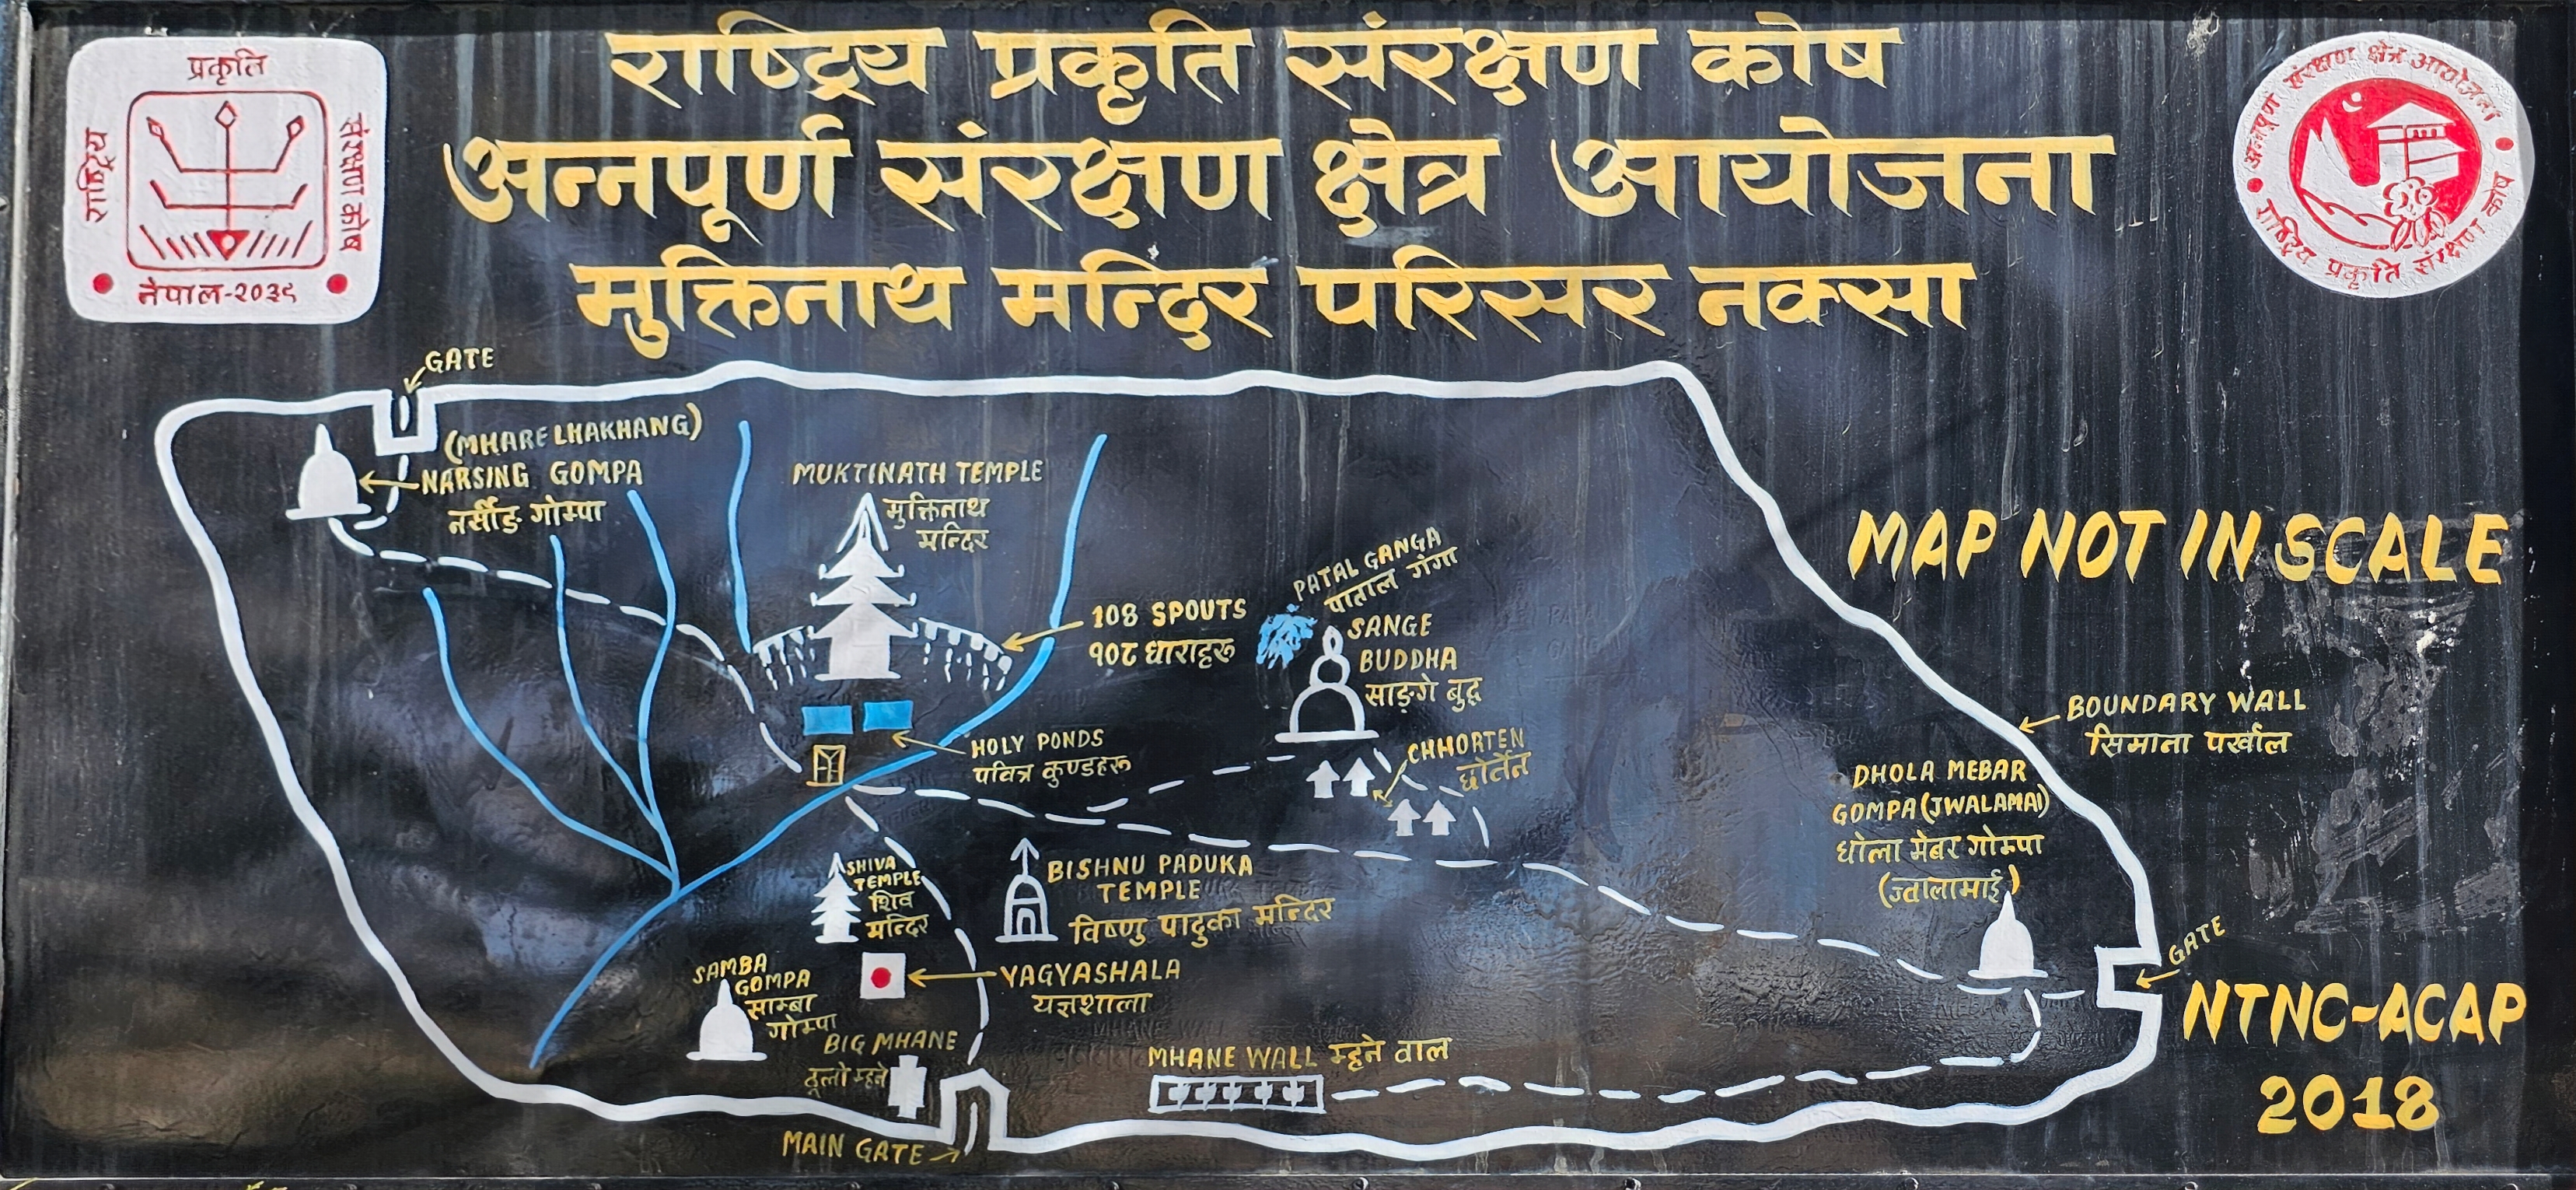 प्रकृति
राष्ट्रिय
संरक्षण कोष
नेपाल-२०३९
राष्ट्रिय प्रकृति संरक्षण कोष
अन्नपूर्ण संरक्षण क्षेत्र आयोजना
मुक्तिनाथ मन्दिर परिसर नक्सा
अन्नपूर्ण संरक्षण क्षेत्र आयोजना
राष्ट्रिय प्रकृति संरक्षण कोष
GATE
(MHARE LHAKHANG)
NARSING GOMPA
नर्सीङ गोम्पा
MUKTINATH TEMPLE
मुक्तिनाथ
मन्दिर
108 SPOUTS
१०८ धाराहरू
PATAL GANGA
पाताल गंगा
SANGE
BUDDHA
साङ्गे बुद्ध
MAP NOT IN SCALE
HOLY PONDS
पवित्र कुण्डहरू
CHHORTEN
छोर्तेन
BOUNDARY WALL
सिमाना पर्खाल
DHOLA MEBAR
GOMPA(JWALAMAI)
धोला मेबर गोम्पा
(ज्वालामाई)
SHIVA
TEMPLE
शिव
मन्दिर
BISHNU PADUKA
TEMPLE
विष्णु पादुका मन्दिर
GATE
SAMBA
GOMPA
साम्बा
गोम्पा
YAGYASHALA
यज्ञशाला
BIG MHANE
ठूलो म्हने
MHANE WALL म्हने वाल
MAIN GATE
NTNC-ACAP
2018